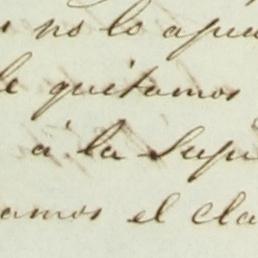 no lo apu
le quitamos
á la Supe
amos el cla